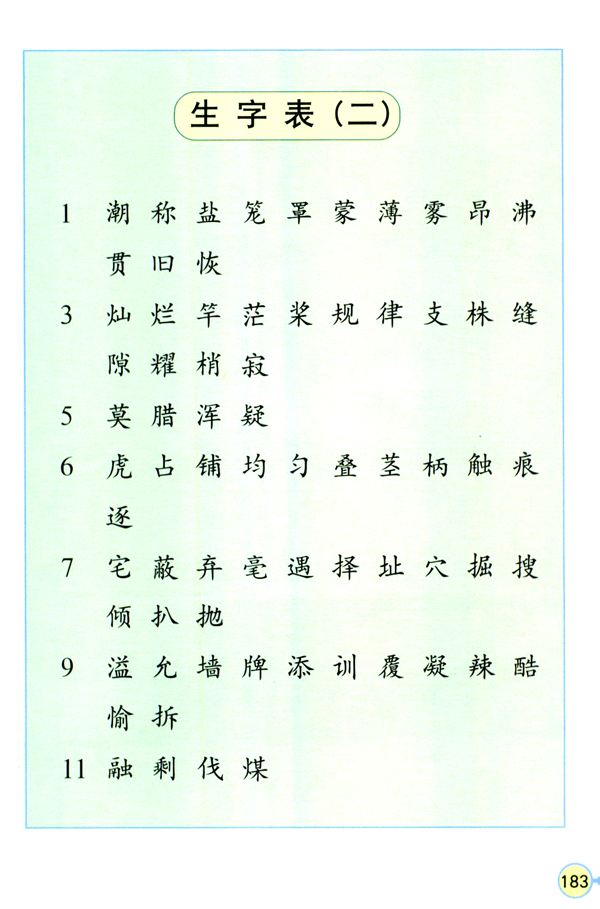 生字表（二）
1 潮 称 盐 笼 罩 蒙 薄 雾 昂 沸
贯 旧 恢
3 灿 烂 竿 茫 桨 规 律 支 株 缝
隙 耀 梢 寂
5 莫 腊 浑 疑
6 虎 占 铺 均 匀 叠 茎 柄 触 痕
逐
7 宅 蔽 弃 毫 遇 择 址 穴 掘 搜
倾 扒 抛
9 溢 允 墙 牌 添 训 覆 凝 辣 酷
愉 拆
11 融 剩 伐 煤
183